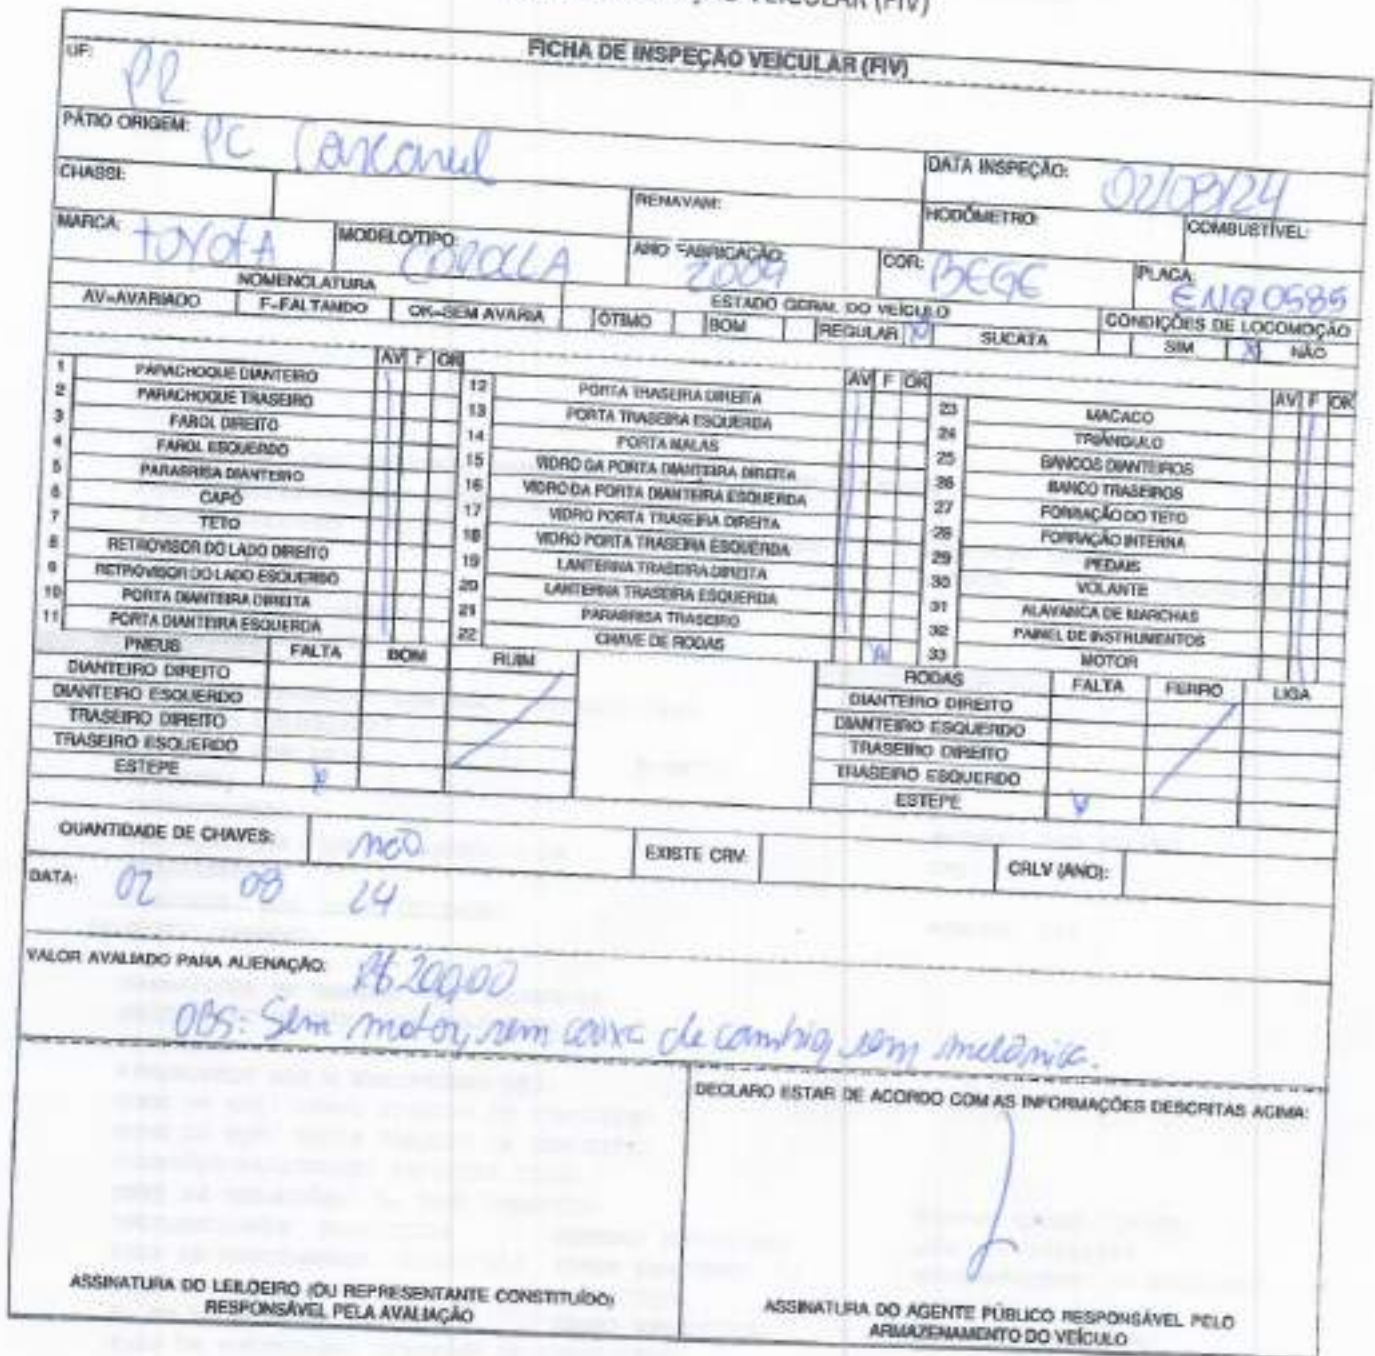 VEICULAR (FIV)
FICHA DE INSPEÇÃO VEICULAR (FIV)
UF: PR
PÁTIO ORIGEM: PC Cascavel
DATA INSPEÇÃO: 02/08/24
CHASSI:
RENAVAM:
HODÔMETRO:
COMBUSTÍVEL:
MARCA: TOYOTA
MODELO/TIPO: COROLLA
ANO FABRICAÇÃO: 2009
COR: BEGE
PLACA: ENQ0585
NOMENCLATURA
ESTADO GERAL DO VEÍCULO
CONDIÇÕES DE LOCOMOÇÃO
AV=AVARIADO F=FALTANDO OK=SEM AVARIA ÓTIMO BOM REGULAR X SUCATA SIM X NÃO
AV F OK
1 PARACHOQUE DIANTEIRO
2 PARACHOQUE TRASEIRO
3 FAROL DIREITO
4 FAROL ESQUERDO
5 PARABRISA DIANTEIRO
6 CAPÔ
7 TETO
8 RETROVISOR DO LADO DIREITO
9 RETROVISOR DO LADO ESQUERDO
10 PORTA DIANTEIRA DIREITA
11 PORTA DIANTEIRA ESQUERDA
AV F OK
12 PORTA TRASEIRA DIREITA
13 PORTA TRASEIRA ESQUERDA
14 PORTA MALAS
15 VIDRO DA PORTA DIANTEIRA DIREITA
16 VIDRO DA PORTA DIANTEIRA ESQUERDA
17 VIDRO PORTA TRASEIRA DIREITA
18 VIDRO PORTA TRASEIRA ESQUERDA
19 LANTERNA TRASEIRA DIREITA
20 LANTERNA TRASEIRA ESQUERDA
21 PARABRISA TRASEIRO
22 CHAVE DE RODAS X
AV F OK
23 MACACO
24 TRIÂNGULO
25 BANCOS DIANTEIROS
26 BANCO TRASEIROS
27 FORRAÇÃO DO TETO
28 FORRAÇÃO INTERNA
29 PEDAIS
30 VOLANTE
31 ALAVANCA DE MARCHAS
32 PAINEL DE INSTRUMENTOS
33 MOTOR
PNEUS FALTA BOM RUIM
DIANTEIRO DIREITO
DIANTEIRO ESQUERDO
TRASEIRO DIREITO
TRASEIRO ESQUERDO
ESTEPE X
RODAS FALTA FERRO LIGA
DIANTEIRO DIREITO
DIANTEIRO ESQUERDO
TRASEIRO DIREITO
TRASEIRO ESQUERDO
ESTEPE X
QUANTIDADE DE CHAVES: não
EXISTE CRV:
CRLV (ANO):
DATA: 02 08 24
VALOR AVALIADO PARA ALIENAÇÃO: R$ 200,00
OBS: Sem motor, sem caixa de cambio, sem mecânica.
DECLARO ESTAR DE ACORDO COM AS INFORMAÇÕES DESCRITAS ACIMA:
ASSINATURA DO LEILOEIRO (OU REPRESENTANTE CONSTITUÍDO)
RESPONSÁVEL PELA AVALIAÇÃO
ASSINATURA DO AGENTE PÚBLICO RESPONSÁVEL PELO
ARMAZENAMENTO DO VEÍCULO